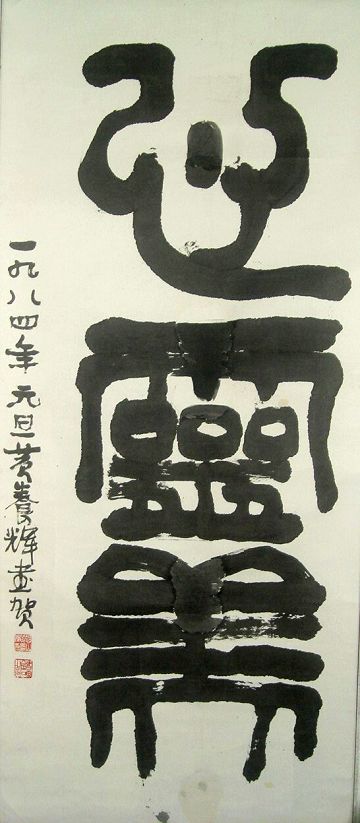 心靈美
一九八四年元旦黄養輝書贺